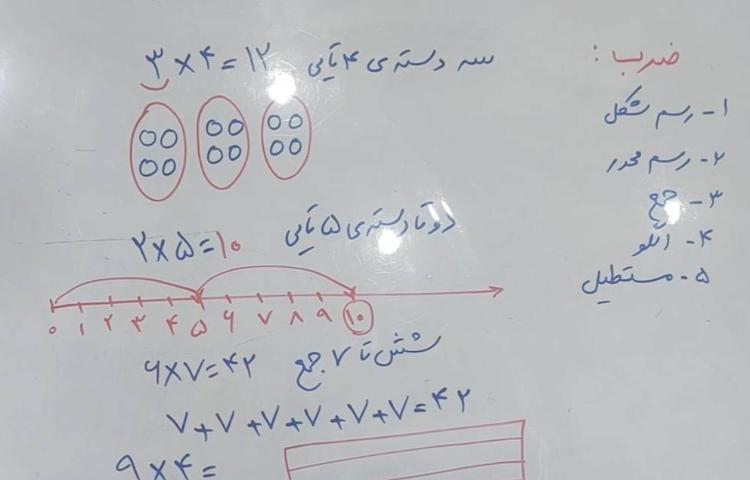 ضرب :
۱- رسم شکل
۲- رسم محور
۳- جمع
۴- الگو
۵- مستطیل
۳×۴=۱۲ سه دسته ی ۴ تایی
۲×۵=۱۰ دو تا دسته ی ۵ تایی
۰ ۱ ۲ ۳ ۴ ۵ ۶ ۷ ۸ ۹ ۱۰
۶×۷=۴۲ شش تا ۷ جمع
۷+۷+۷+۷+۷+۷=۴۲
۹×۴=